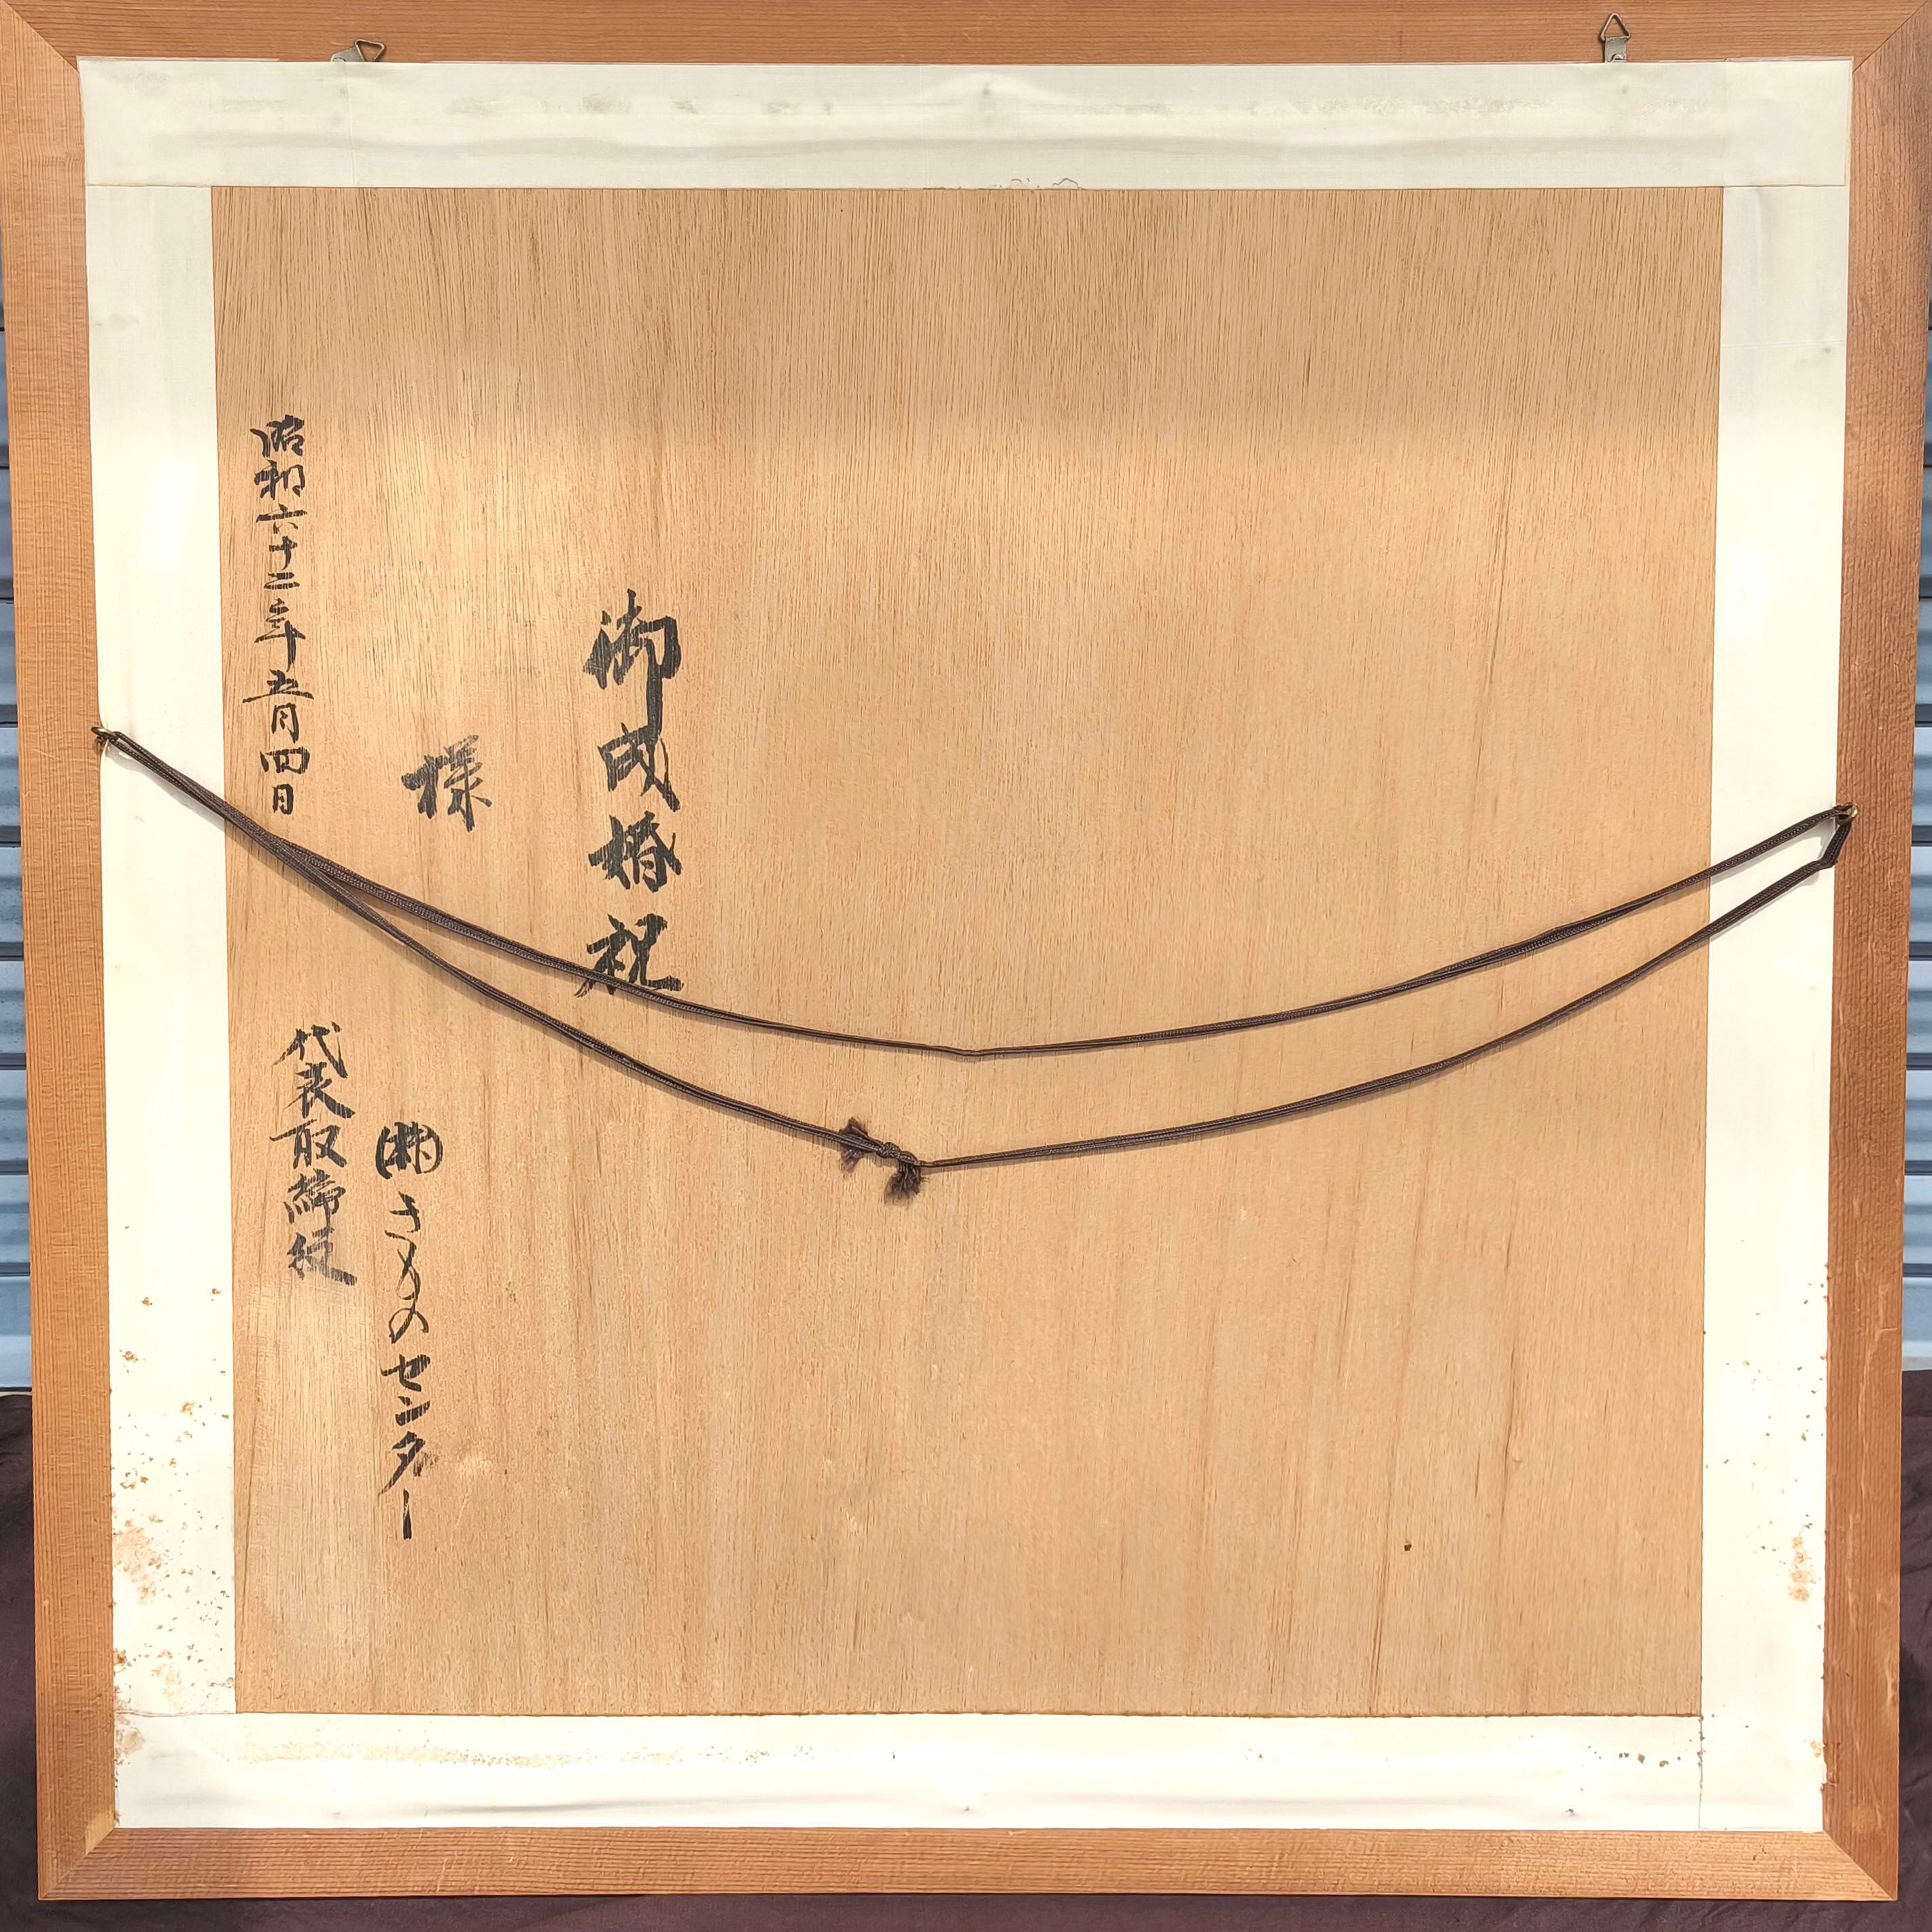 御成婚祝
様
昭和六十二年五月四日
㈱きものセンター
代表取締役